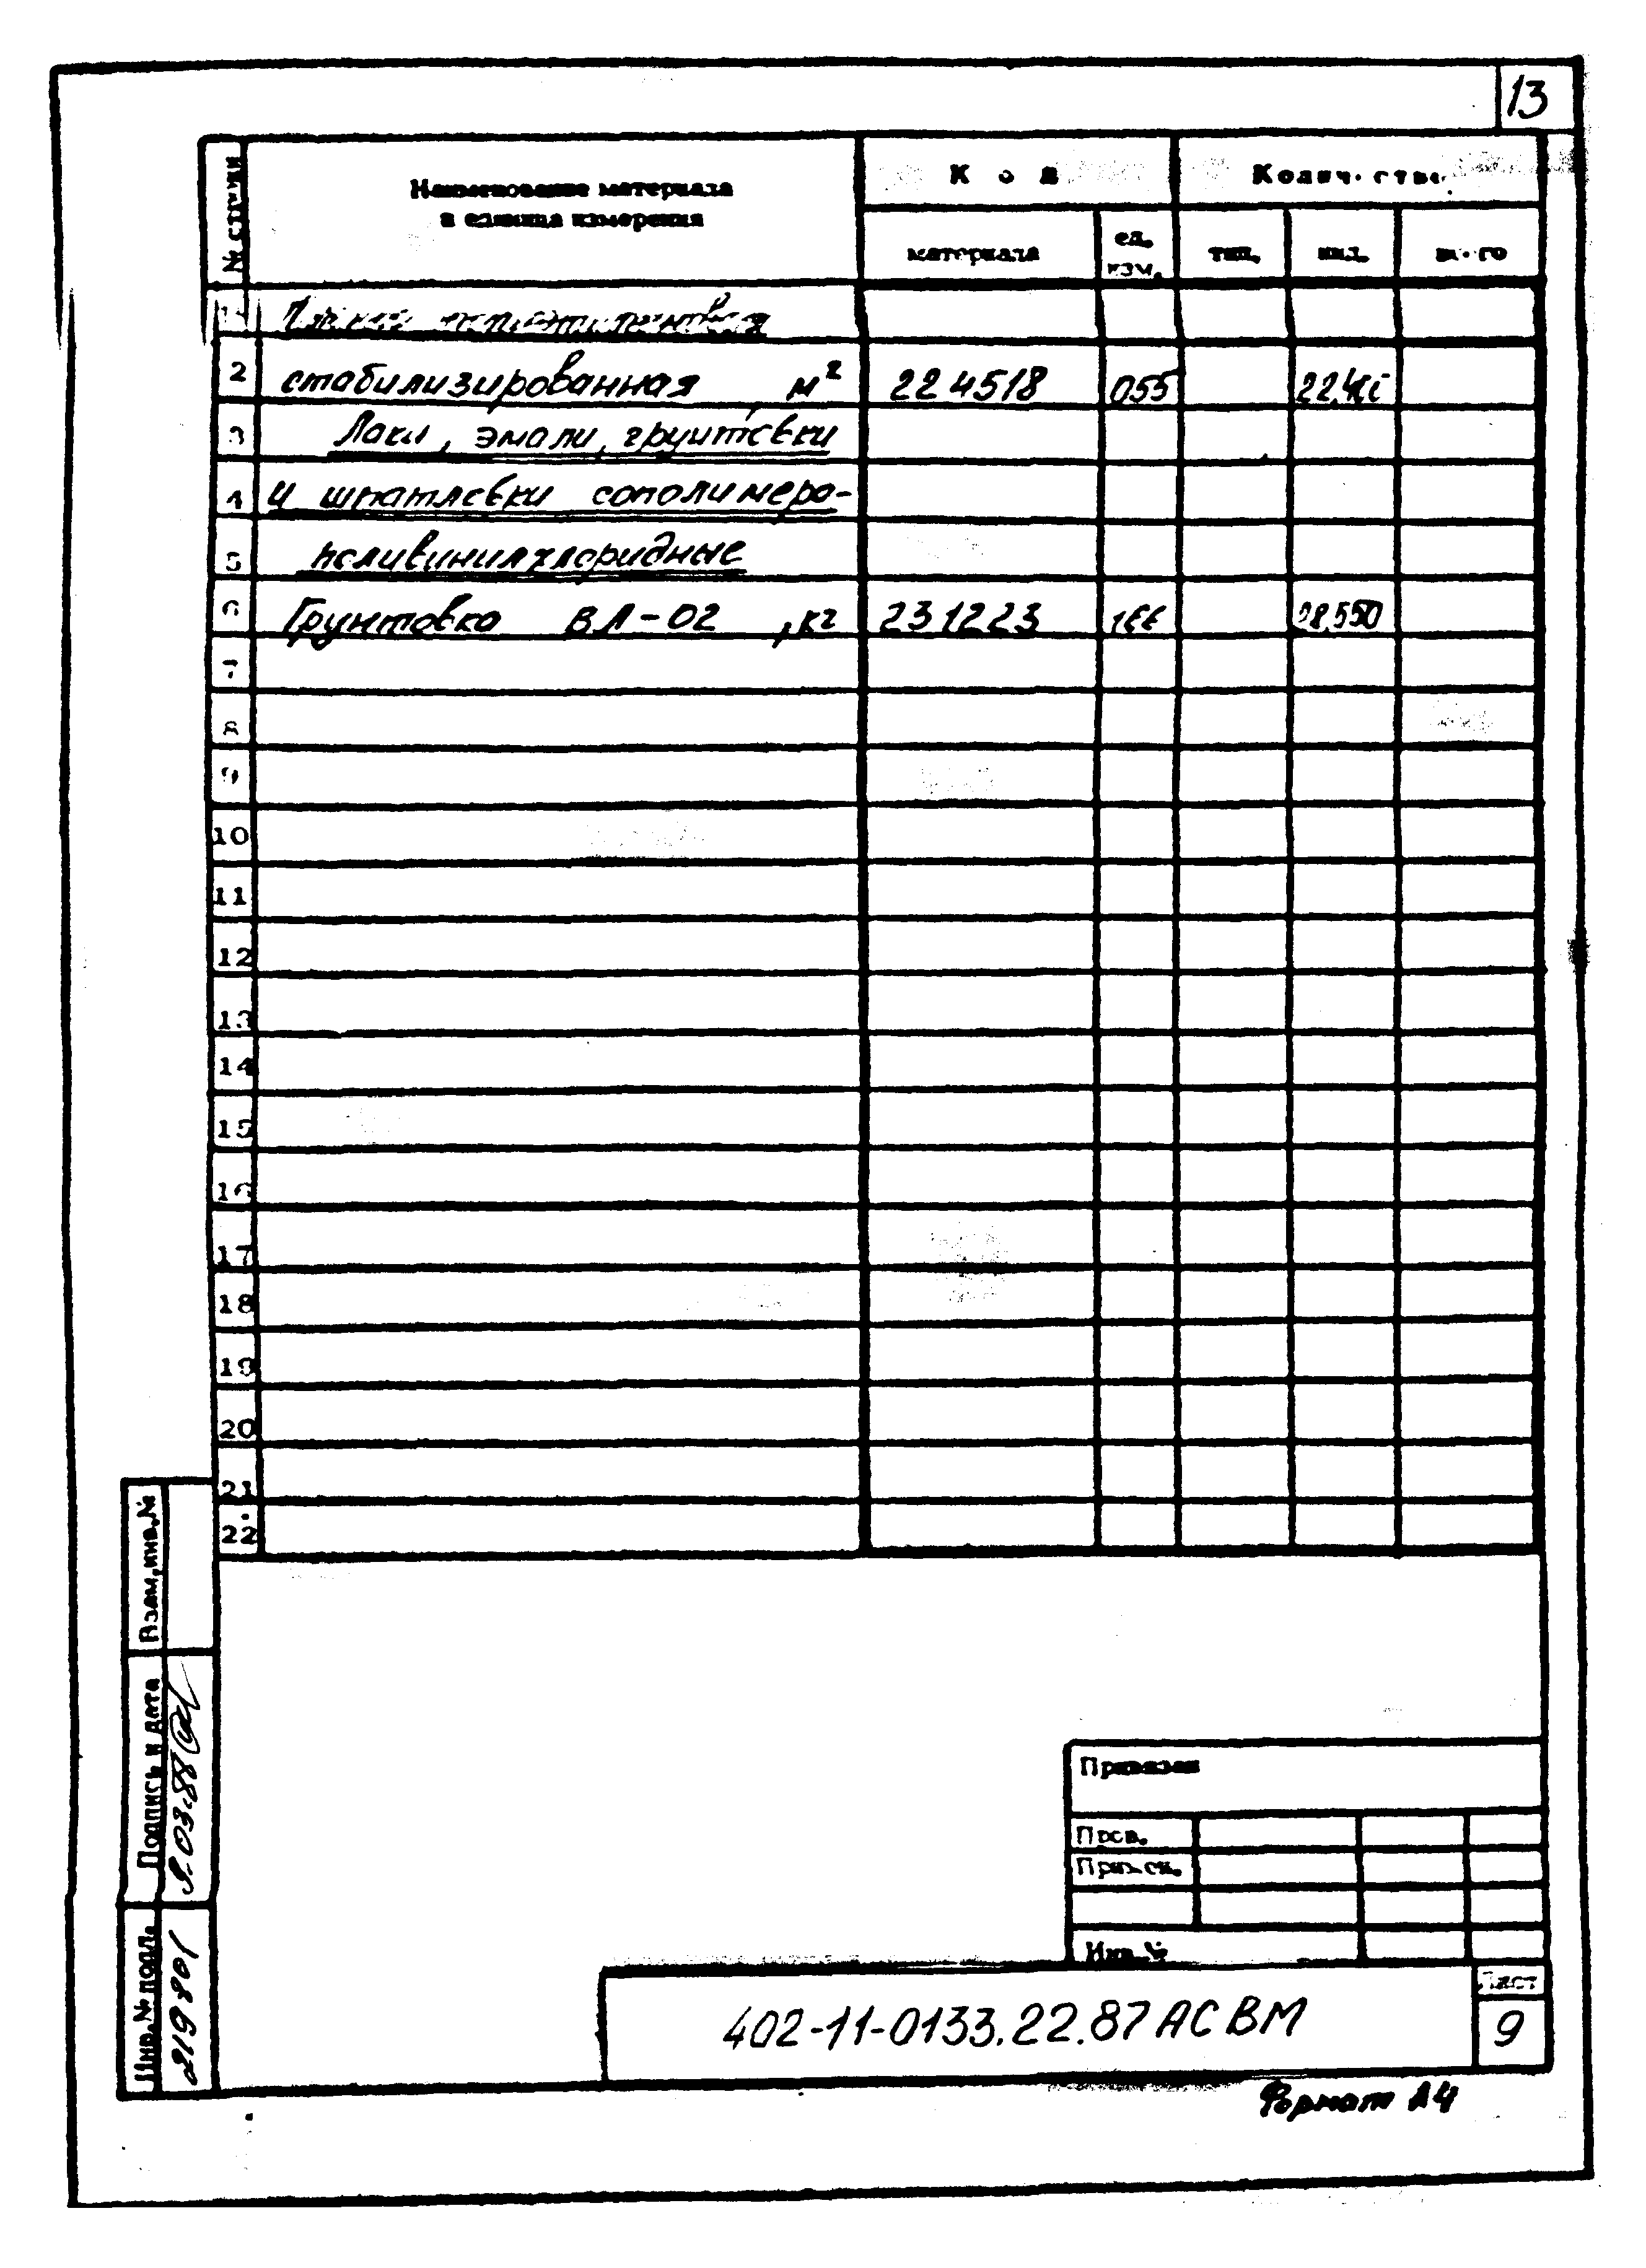 13
№ строки
Наименование материала
и единица измерения
К о д
Количество
материала
ед.
изм.
тип.
инд.
всего
1
2 стабилизированная м² 224518 055
3 Лаки, эмали, грунтовки
4 и шпатлевки сополимеро-
5 поливинилхлоридные
6 Грунтовка ВЛ-02 , кг 231223 166 28,550
7
8
9
10
11
12
13
14
15
16
17
18
19
20
21
22
Взам.инв.№
Подпись и дата
Инв.№ подл.
21980/
Привязан
Инв.№
402-11-0133.22.87 АС ВМ
Лист
9
Формат А4